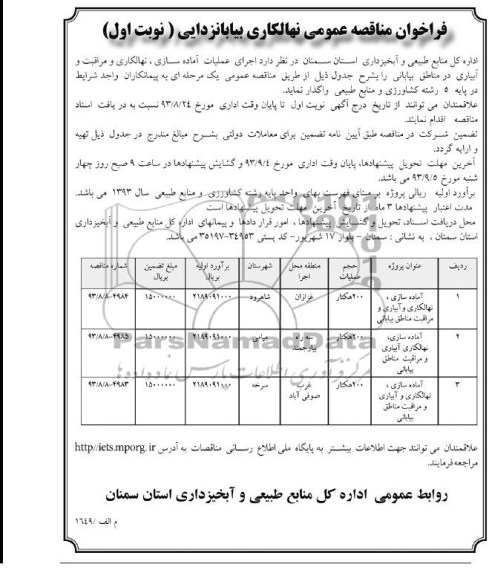 فراخوان مناقصه عمومی نهالکاری بیابانزدایی ( نوبت اول)
اداره کل منابع طبیعی و آبخیزداری استان سمنان در نظر دارد اجرای عملیات آماده سازی ، نهالکاری و مراقبت و
آبیاری در مناطق بیابانی را بشرح جدول ذیل از طریق مناقصه عمومی یک مرحله ای به پیمانکاران واجد شرایط
در پایه ۵ رشته کشاورزی و منابع طبیعی واگذار نماید.
علاقمندان می توانند از تاریخ درج آگهی نوبت اول تا پایان وقت اداری مورخ ۹۳/۸/۲۴ نسبت به دریافت اسناد
مناقصه اقدام نمایند.
تضمین شرکت در مناقصه طبق آیین نامه تضمین برای معاملات دولتی بشرح مبالغ مندرج در جدول ذیل تهیه
و ارایه گردد.
آخرین مهلت تحویل پیشنهادها، پایان وقت اداری مورخ ۹۳/۹/۴ و گشایش پیشنهادها در ساعت ۹ صبح روز چهار
شنبه مورخ ۹۳/۹/۵ می باشد.
برآورد اولیه ریالی پروژه بر مبنای فهرست بهای واحد پایه رشته کشاورزی و منابع طبیعی سال ۱۳۹۳ می باشد.
مدت اعتبار پیشنهادها ۳ ماه از تاریخ آخرین مهلت تحویل پیشنهادها است
محل دریافت اسناد، تحویل و گشایش پیشنهادها ، امور قراردادها و پیمانهای اداره کل منابع طبیعی و آبخیزداری
استان سمنان ، به نشانی : سمنان – بلوار ۱۷ شهریور- کد پستی ۳۴۹۵۳-۳۵۱۹۷ می باشد.
ردیف عنوان پروژه حجم عملیات منطقه محل اجرا شهرستان برآورد اولیه بریال مبلغ تضمین بریال شماره مناقصه
۱ آماده سازی ، نهالکاری و آبیاری و مراقبت مناطق بیابانی ۲۰۰هکتار غزازان شاهرود ۲۱۸۹۰۹۱۰۰۰ ۱۵۰۰۰۰۰۰۰ ۹۳/۸/۸-۴۹۸۴
۲ آماده سازی، نهالکاری آبیاری و مراقبت مناطق بیابانی ۲۰۰هکتار سه راه بیارجمند میامی ۲۱۸۹۰۹۱۰۰۰ ۱۵۰۰۰۰۰۰۰ ۹۳/۸/۸-۴۹۸۵
۳ آماده سازی ، نهالکاری و آبیاری و مراقبت مناطق بیابانی ۲۰۰هکتار غرب صوفی آباد سرخه ۲۱۸۹۰۹۱۰۰۰ ۱۵۰۰۰۰۰۰۰ ۹۳/۸/۸-۴۹۸۳
ParsNamadData
مرکز فرآوری اطلاعات پارس نماد داده ها
علاقمندان می توانند جهت اطلاعات بیشتر به پایگاه ملی اطلاع رسانی مناقصات به آدرس http//iets.mporg.ir
مراجعه فرمایند.
روابط عمومی اداره کل منابع طبیعی و آبخیزداری استان سمنان
م الف /۱۶۴۹